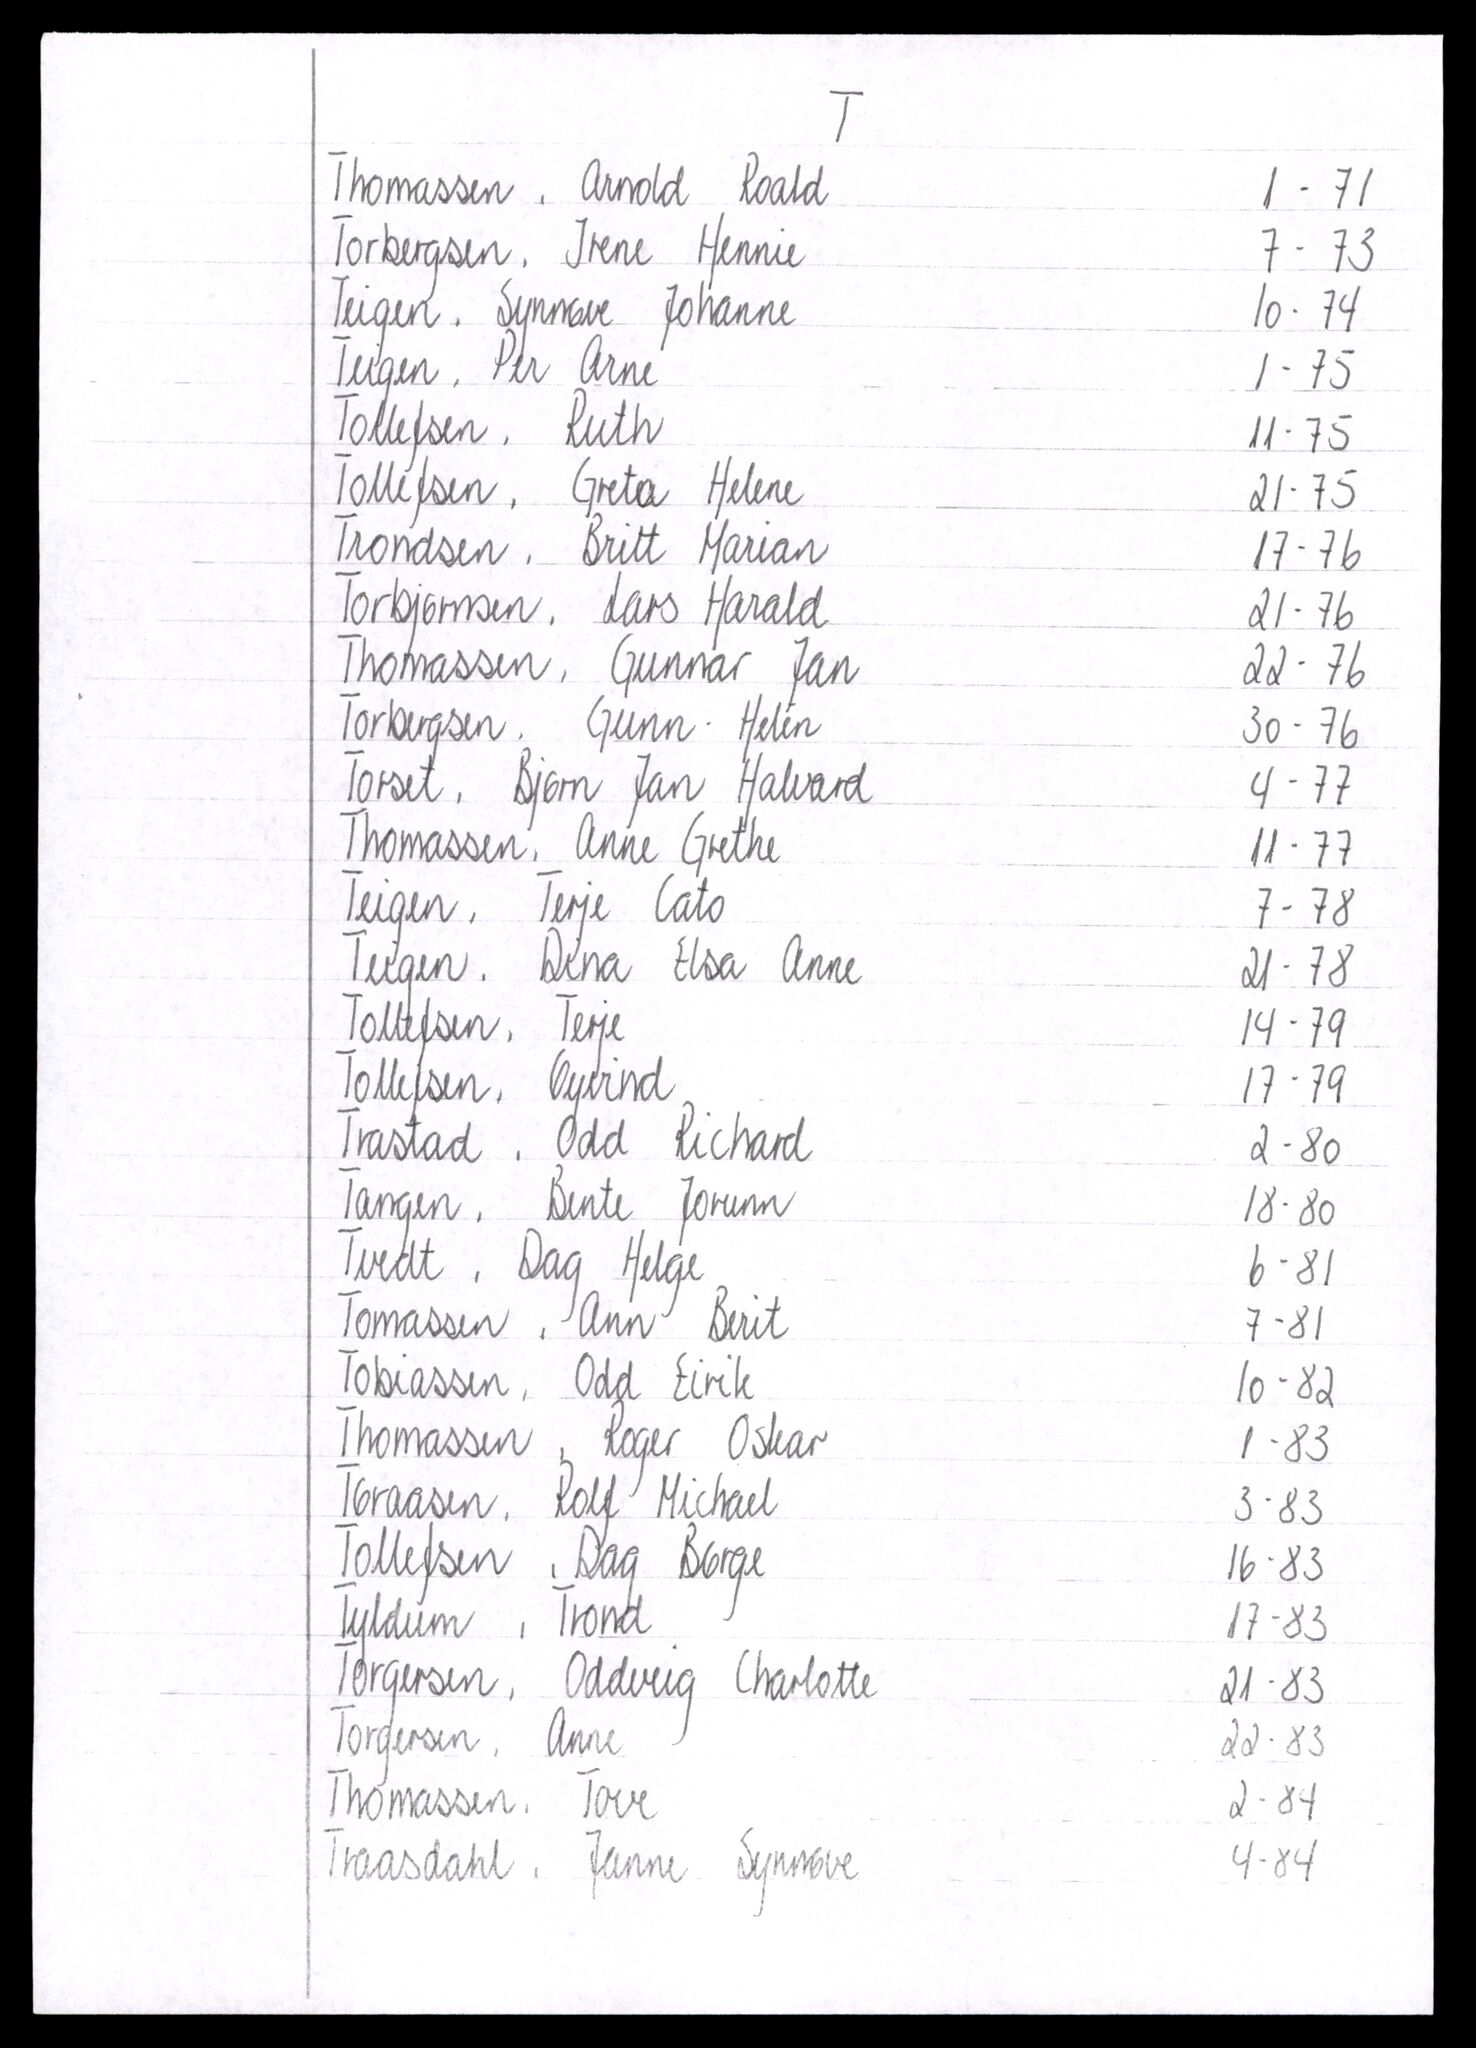 T
Thomassen, Arnold Roald 1 - 71
Torbergsen, Irene Hennie 7 - 73
Teigen, Synnøve Johanne 10 - 74
Teigen, Per Arne 1 - 75
Tollefsen, Ruth 11 - 75
Tollefsen, Greta Helene 21 - 75
Trondsen, Britt Marian 17 - 76
Torbjørnsen, Lars Harald 21 - 76
Thomassen, Gunnar Jan 22 - 76
Torbergsen, Gunn - Helén 30 - 76
Torset, Bjørn Jan Halvard 4 - 77
Thomassen, Anne Grethe 11 - 77
Teigen, Terje Cato 7 - 78
Teigen, Dina Elsa Anne 21 - 78
Tollefsen, Terje 14 - 79
Tollefsen, Øyvind 17 - 79
Trastad, Odd Richard 2 - 80
Tangen, Bente Jorunn 18 - 80
Tvedt, Dag Helge 6 - 81
Tomassen, Ann Berit 7 - 81
Tobiassen, Odd Eirik 10 - 82
Thomassen, Roger Oskar 1 - 83
Tøraasen, Rolf Michael 3 - 83
Tollefsen, Dag Børge 16 - 83
Tyldum, Trond 17 - 83
Torgersen, Oddveig Charlotte 21 - 83
Torgersen, Anne 22 - 83
Thomassen, Tove 2 - 84
Traasdahl, Janne Synnøve 4 - 84